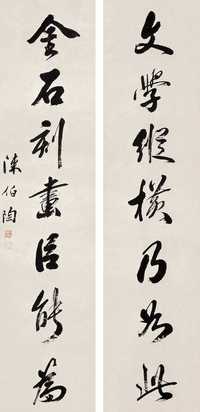 文學縱橫乃如此
金石刻畫臣能為
陳伯陶